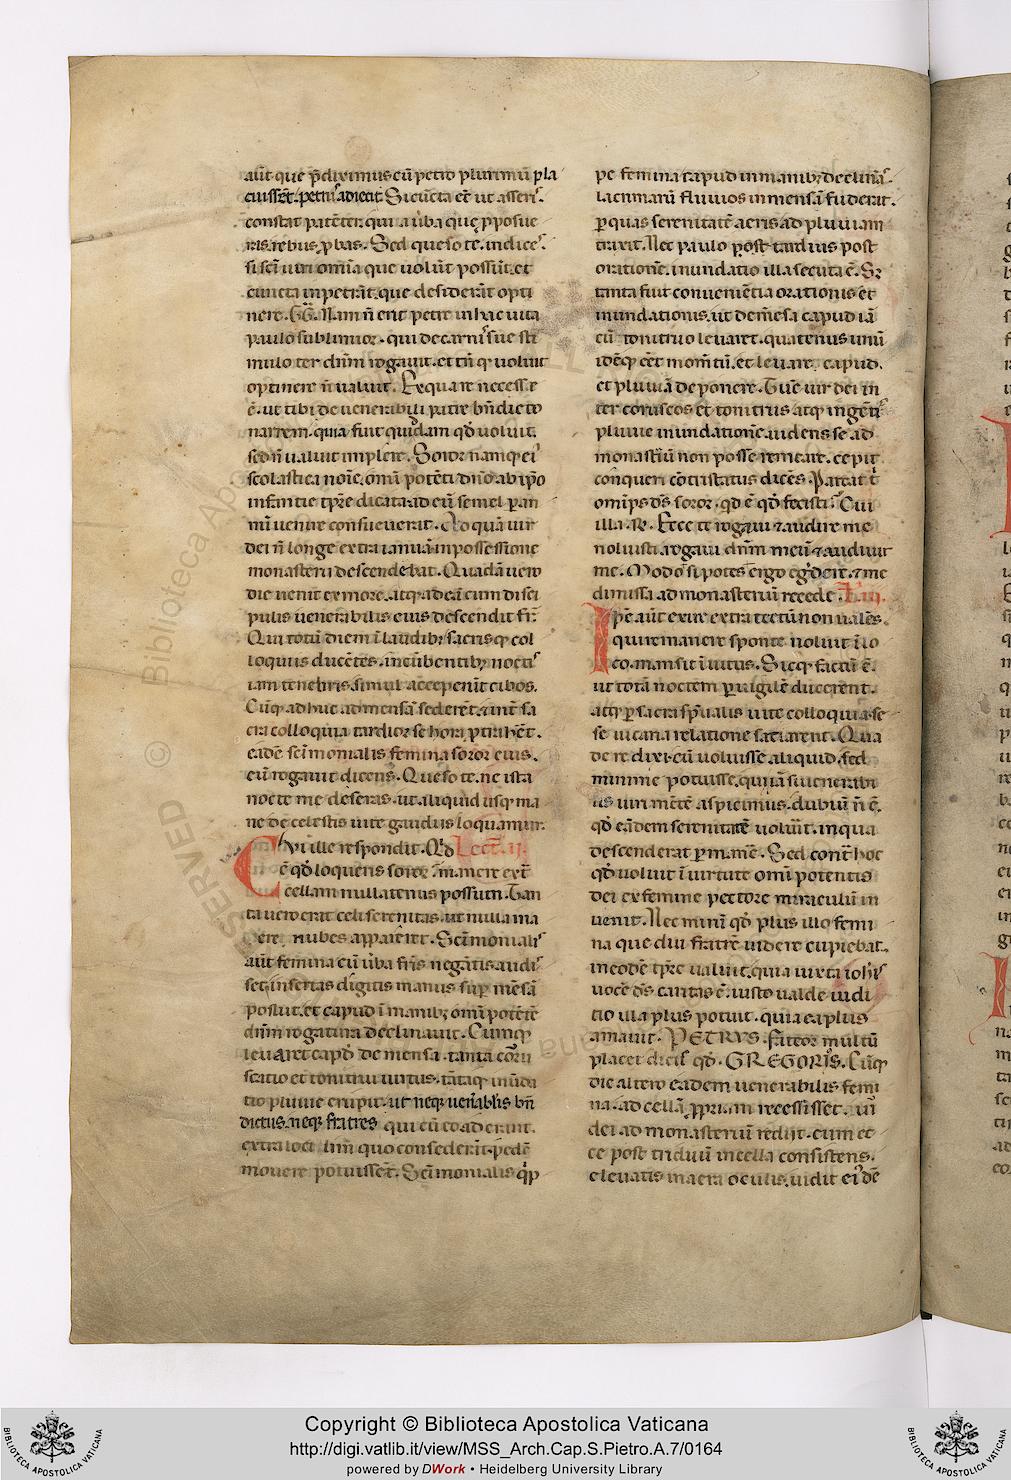 aūt que p̄diximus cū petro plurimū pla
cuissēt. petrus adiecit. Sicuti ēst ut asseris.
constat patēter. quia uba que pposue
ras. rebus pbas. Sed queso te. indices.
si sc̄i uiri omīa que uolūt possūt. et
cuncta inpetrāt. que desiderāt opti
nere. GG. Nam n̄ erit petre in hac uita
paulo sublimior. qui de carnis sue sti
mulo ter dn̄m rogauit. et tn̄ qd uoluit
optinere n̄ ualuit. Ex qua re necesse
ē. ut tibi de uenerabili patre bn̄dicto
narrem. quia fuit quiddam qd uoluit.
sed n̄ ualuit implere. Soror namq ei
scolastica noīe. omī potēti dn̄o ab ipo
infantie tp̄re dicata. ad eū semel p an
nū uenire consueuerat. Ad quā uir
dei n̄ longe extra ianuā in possessione
monasterii descendebat. Quadā uero
die uenit ex more. atq ad eā cum disci
pulis uenerabilis eius descendit fr̄.
Qui totū diem ī laudib; sacrisq col
loquiis ducētes. incūbentib; noctis
iam tenebris. simul acceperūt cibos.
Cūq adhuc ad mensā sederēt. & int̄ sa
cra colloquia tardior se hora ptrahēt.
eadē sc̄imonialis femina soror eius.
eū rogauit dicens. Queso te. ne ista
nocte me deseras. ut aliquid usq ma
ne de celestis uite gaudiis loquamur.
Cui ille respondit. Qd Lect. ii.
ē qd loqueris soror. manere ext̄
cellam nullatenus possum. Tan
ta uero erat celi serenitas. ut nulla ma
nubes appareret. Sc̄imonialis
aūt femina cū uba fr̄is negātis audis
set. insertas digitis manus sup mēsā
posuit. et capud ī manib; omī potētē
dn̄m rogatura declinauit. Cumq
leuaret capd de mensa. tanta coru
scatio et tonitrui uirtus. tātaq inūda
tio pluuie erupit. ut neq uen̄abilis bn̄
dictus. neq fratres qui cū eo aderant.
extra loci limē quo consederāt. pedē
mouere potuissēt. Sc̄imonialis qp
pe femina capud in manib; declinās.
lacrimarū fluuios in mensā fuderat.
p quas serenitatē aeris ad pluuiam
traxit. Nec paulo post tardius post
orationē. inundatio illa secuta ē. Sz
tanta fuit conueniētia orationis et
inundationis. ut de mēsa capud iā
cū tonitruo leuaret. quatenus unū
idēq eēt momtū. et leuare capud.
et pluuiā deponere. Tūc uir dei in
ter coruscos et tonitrus atq ingētis
pluuie inundationē. uidens se ad
monastiū non posse remeare. cepit
conqueri cōtristatus dicēs. Parcat t
omīps ds soror. qd ē qd fecisti. Cui
illa R. Ecce te rogaui & audire me
noluisti. rogaui dn̄m meū & audiuit
me. Modo si potes ergo egrdere. & me
dimissa ad monasteriū recede. L. iii.
Ipe aūt exire extra tectū non ualēs.
qui remanere sponte noluit ī lo
co. mansit īuitus. Sicq factū ē.
ut totā noctem puigilē ducerent.
atq p sacra spualis uite colloquia. se
se uicaria relatione satiarent. Qua
de re dixi. eū uoluisse aliquid. sed
minime potuisse. quia si uenerabi
lis uiri mētē aspicimus. dubiū n̄ ē.
qd eādem serenitatē uoluit. in qua
descenderat pmane. Sed cont̄ hoc
qd uoluit ī uirtute omī potentis
dei ex femine pectore miraculū in
uenit. Nec mirū qd plus illo femi
na que diu fratrē uidere cupiebat.
in eodē tp̄re ualuit. quia iuxta iohis
uocē ds caritas ē. iusto ualde iudi
tio illa plus potuit. quia ea plus
amauit. PETRVS. Fateor multū
placet dicis qd. GREGORIS. Cūq
die altero eadem uenerabilis femi
na. ad cellā ppriam recessisset. uir
dei ad monasteriū rediit. cum ec
ce post triduū in cella consistens.
eleuatis in aera oculis. uidit eidē
Copyright © Biblioteca Apostolica Vaticana
http://digi.vatlib.it/view/MSS_Arch.Cap.S.Pietro.A.7/0164
powered by DWork • Heidelberg University Library